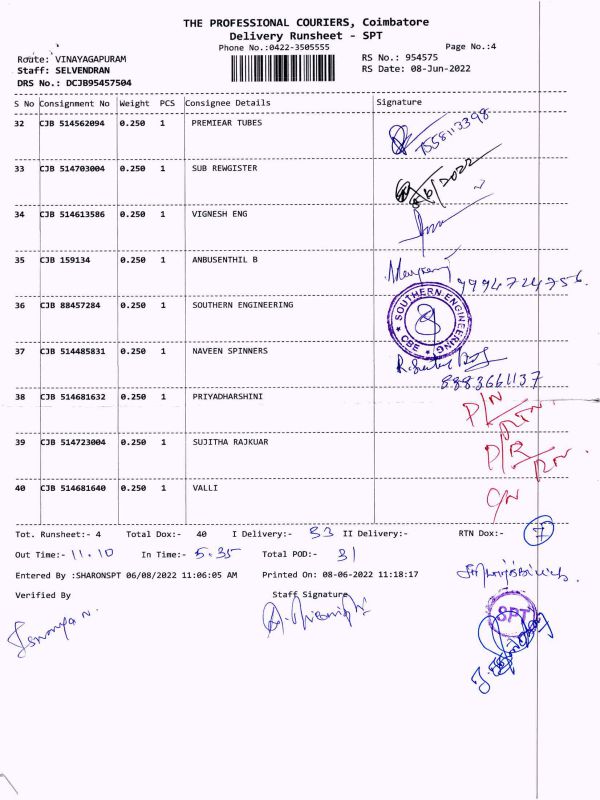 THE PROFESSIONAL COURIERS, Coimbatore
Delivery Runsheet - SPT
Phone No.:0422-3505555
Page No.:4
Route: VINAYAGAPURAM
RS No.: 954575
Staff: SELVENDRAN
RS Date: 08-Jun-2022
DRS No.: DCJB95457504
S No Consignment No Weight PCS Consignee Details Signature
32 CJB 514562094 0.250 1 PREMIEAR TUBES
33 CJB 514703004 0.250 1 SUB REWGISTER
34 CJB 514613586 0.250 1 VIGNESH ENG
35 CJB 159134 0.250 1 ANBUSENTHIL B
9994724756.
36 CJB 88457284 0.250 1 SOUTHERN ENGINEERING
SOUTHERN ENGINEERING * CBE *
37 CJB 514485831 0.250 1 NAVEEN SPINNERS
8883661137
38 CJB 514681632 0.250 1 PRIYADHARSHINI
D/N
RTN.
39 CJB 514723004 0.250 1 SUJITHA RAJKUAR
D/R
RTN
40 CJB 514681640 0.250 1 VALLI
C/N
Tot. Runsheet:- 4 Total Dox:- 40 I Delivery:- 33 II Delivery:- RTN Dox:- 7
Out Time:- 11.10 In Time:- 5.35 Total POD:- 31
Entered By :SHARONSPT 06/08/2022 11:06:05 AM Printed On: 08-06-2022 11:18:17
Verified By Staff Signature
SPT